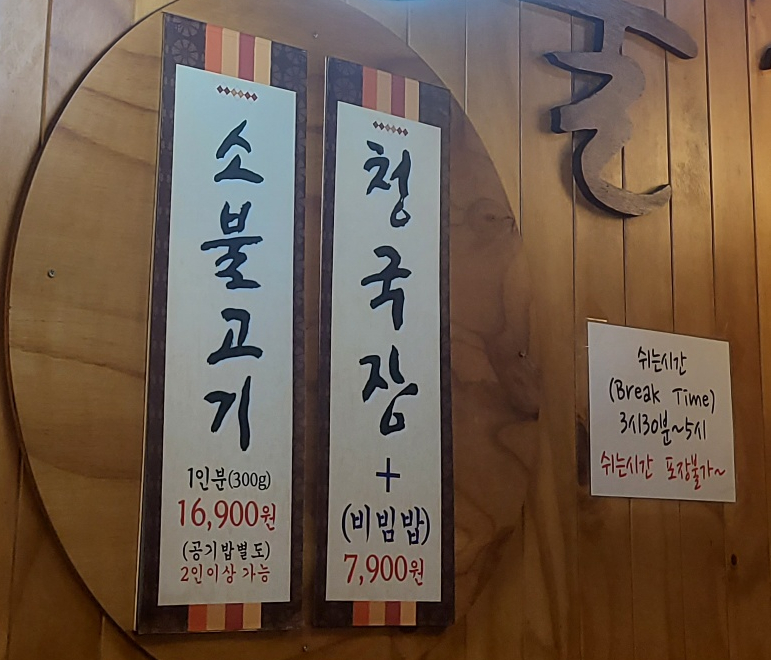 소불고기
1인분(300g)
16,900원
(공기밥별도)
2인이상 가능
청국장
+
(비빔밥)
7,900원
쉬는시간
(Break Time)
3시30분~5시
쉬는시간 포장불가~